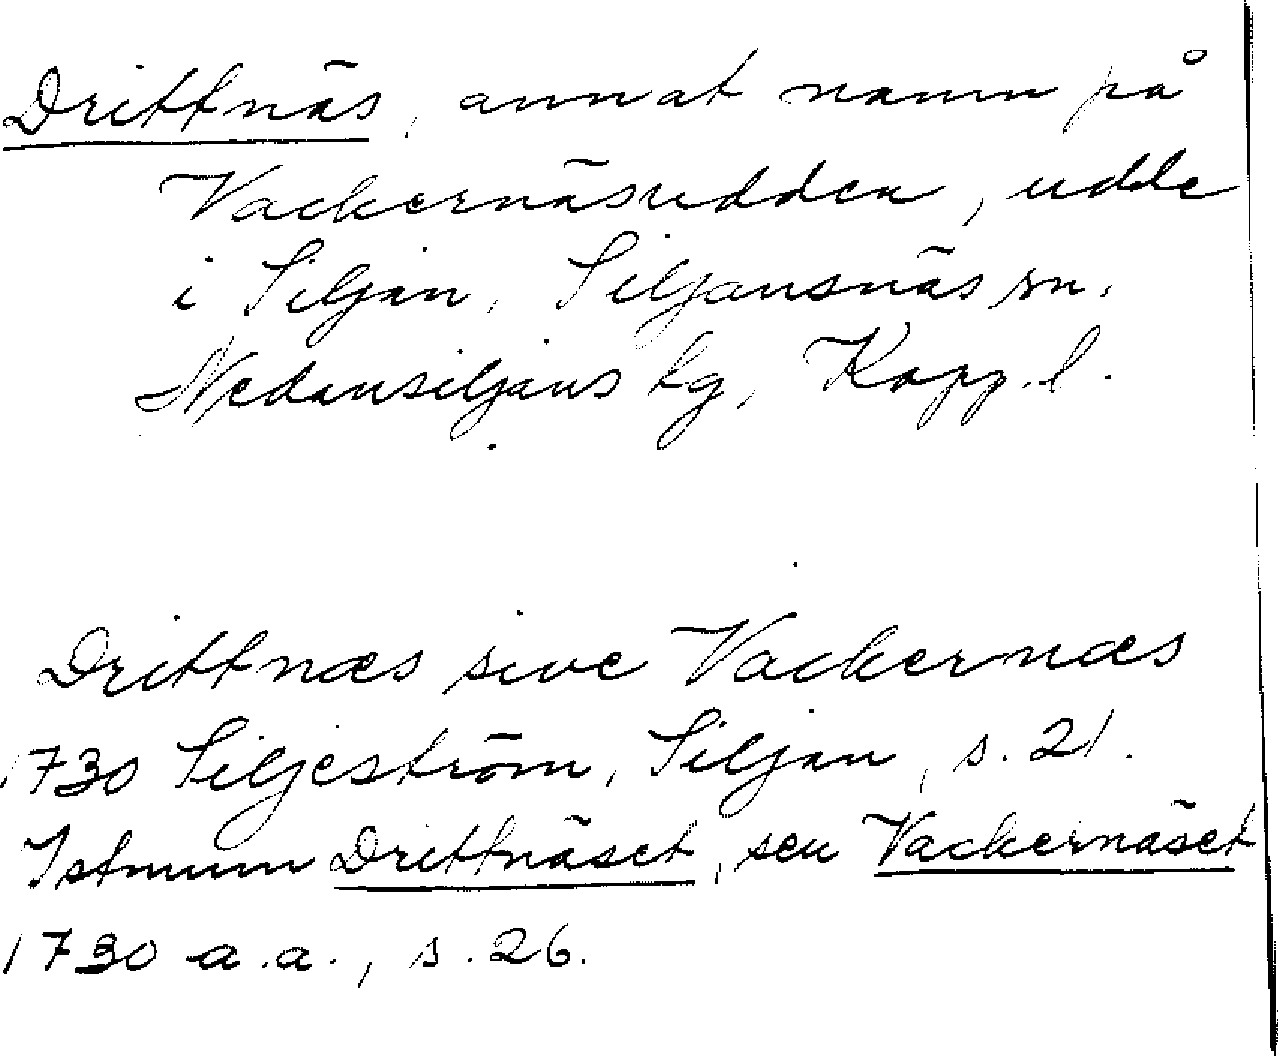 Drittnäs, annat namn på
Vackernäsudden, udde
i Siljan, Siljansnäs sn,
Nedansiljans tg, Kopp. l.
Drittnæs sive Vackernæs
1730 Siljeström, Siljan, s. 21.
Istmum Drittnäset, seu Vackernäset
1730 a.a., s. 26.